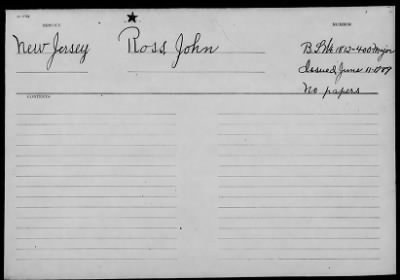 SERVICE
NUMBER
New Jersey
Ross, John
B.L.Wt. 1812-400-Major
Issued June 11-1789
No papers
CONTENTS